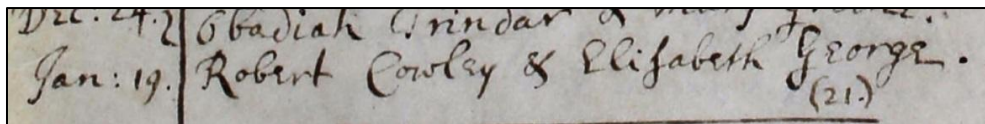 Dec: 24. Obadiah Trindar & Mary
Jan: 19. Robert Cowley & Elisabeth George.
(21.)